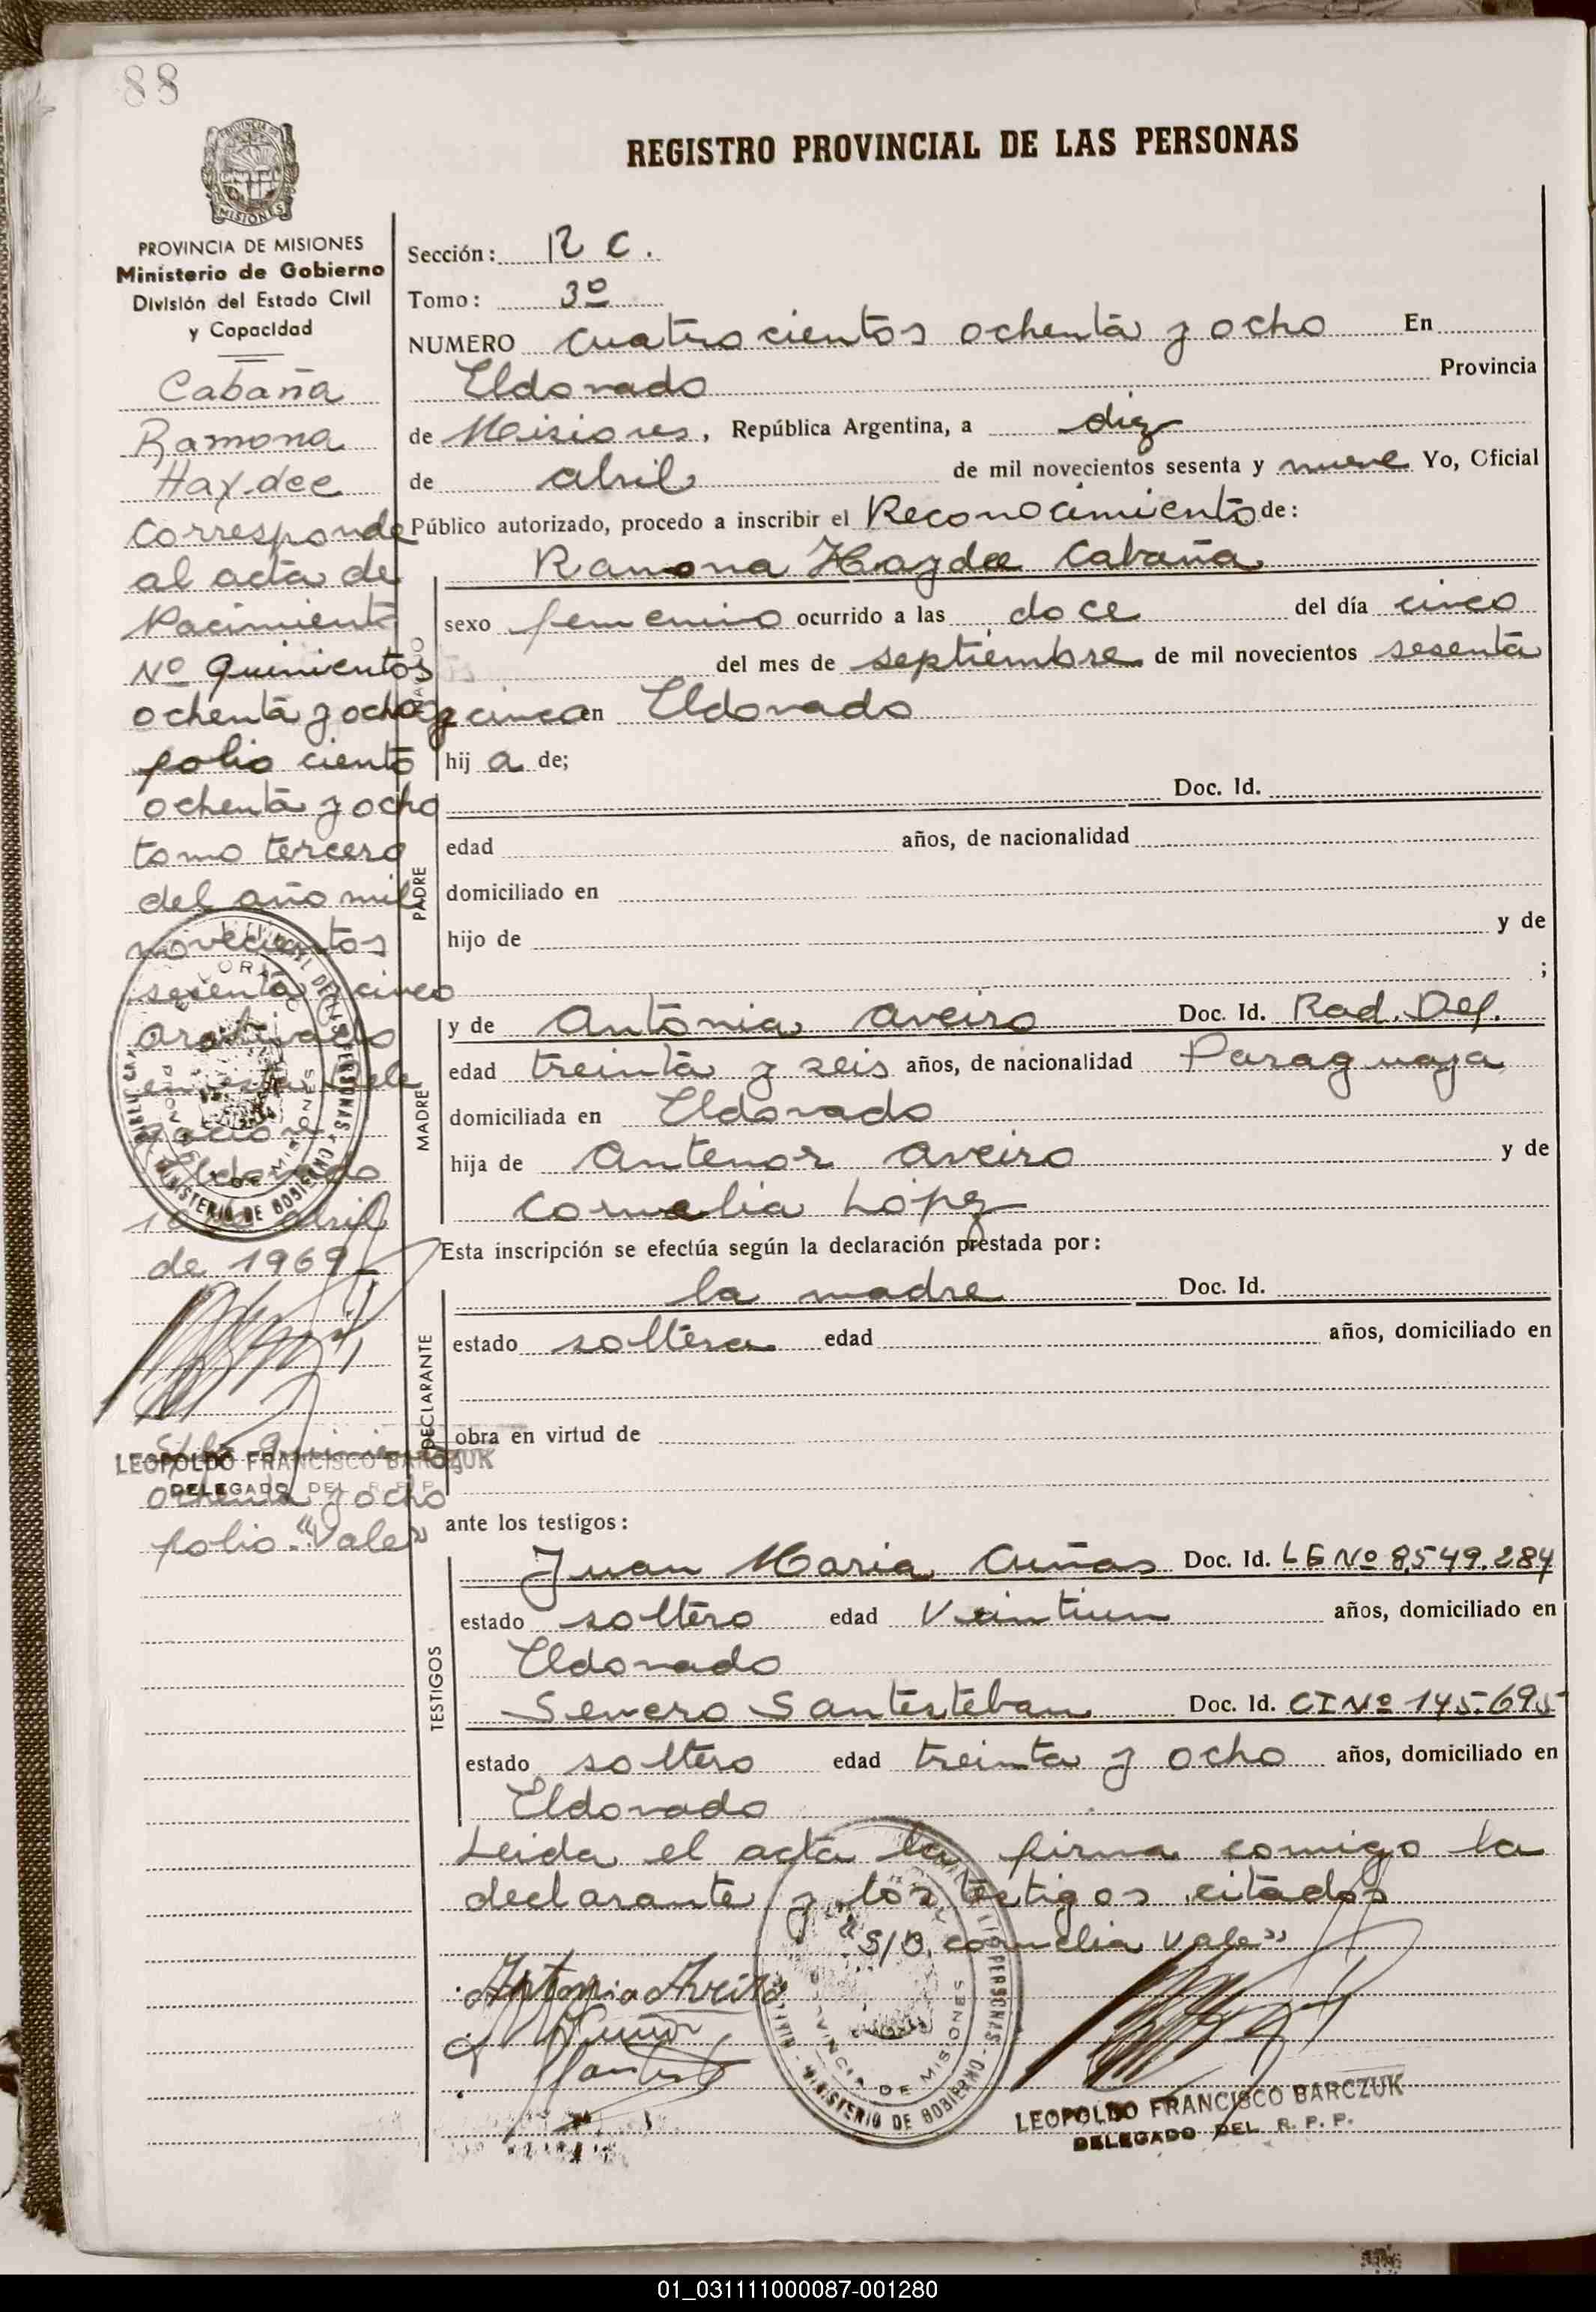 88
REGISTRO PROVINCIAL DE LAS PERSONAS
PROVINCIA DE MISIONES
Ministerio de Gobierno
División del Estado Civil
y Capacidad
Cabaña
Ramona
Haydee
Corresponde
al acta de
Nacimiento
Nº Quinientos
ochenta y ocho
folio ciento
ochenta y ocho
tomo tercero
del año mil
novecientos
sesenta y cinco
archivado
en esta Dele
gacion
Eldorado
10 de abril
de 1969
LEOPOLDO FRANCISCO BARCZUK
DELEGADO DEL R. P. P.
ochenta y ocho
folio "Vale"
Sección: R C.
Tomo: 3º
NUMERO Cuatrocientos ochenta y ocho En
Eldorado Provincia
de Misiones, República Argentina, a diez
de abril de mil novecientos sesenta y nueve Yo, Oficial
Público autorizado, procedo a inscribir el Reconocimiento de:
Ramona Haydee Cabaña
sexo femenino ocurrido a las doce del día cinco
del mes de septiembre de mil novecientos sesenta
y cinco en Eldorado
hij a de;
Doc. Id.
PADRE
edad años, de nacionalidad
domiciliado en
hijo de y de
;
MADRE
y de Antonia Aveiro Doc. Id. Rad. Def.
edad treinta y seis años, de nacionalidad Paraguaya
domiciliada en Eldorado
hija de Antenor Aveiro y de
Cornelia López
Esta inscripción se efectúa según la declaración prestada por:
DECLARANTE
la madre Doc. Id.
estado soltera edad años, domiciliado en
obra en virtud de
ante los testigos:
TESTIGOS
Juan Maria Cuñas Doc. Id. LE Nº 8.549.284
estado soltero edad Veintiun años, domiciliado en
Eldorado
Severo Santesteban Doc. Id. CI Nº 145.695
estado soltero edad treinta y ocho años, domiciliado en
Eldorado
Leida el acta la firma comigo la
declarante y los testigos citados
"S/B. cornelia vale"
Antonia Aveiro
PROVINCIA DE MISIONES
MINISTERIO DE GOBIERNO
LEOPOLDO FRANCISCO BARCZUK
DELEGADO DEL R. P. P.
01_031111000087-001280